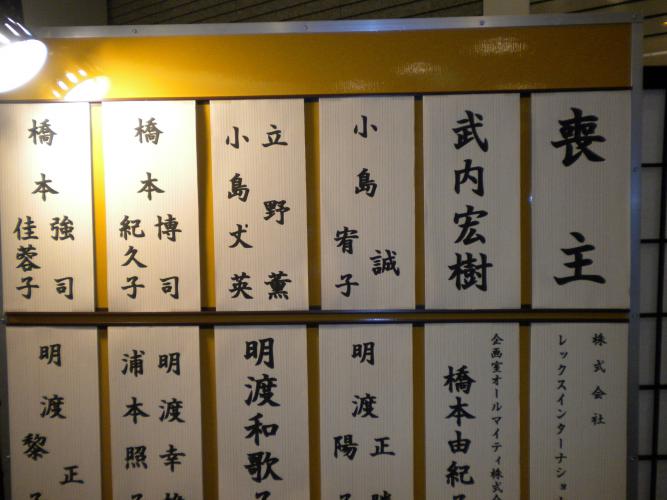 喪主
武内宏樹
小島 誠
宥子
立野 薫
小島丈英
橋本 博司
紀久子
橋本 強司
佳蓉子
株式会社
レックスインターナショ
企画室オールマイティ株式会
橋本由紀
明渡 正
陽
明渡和歌
明渡幸
浦本照
明渡 正
黎